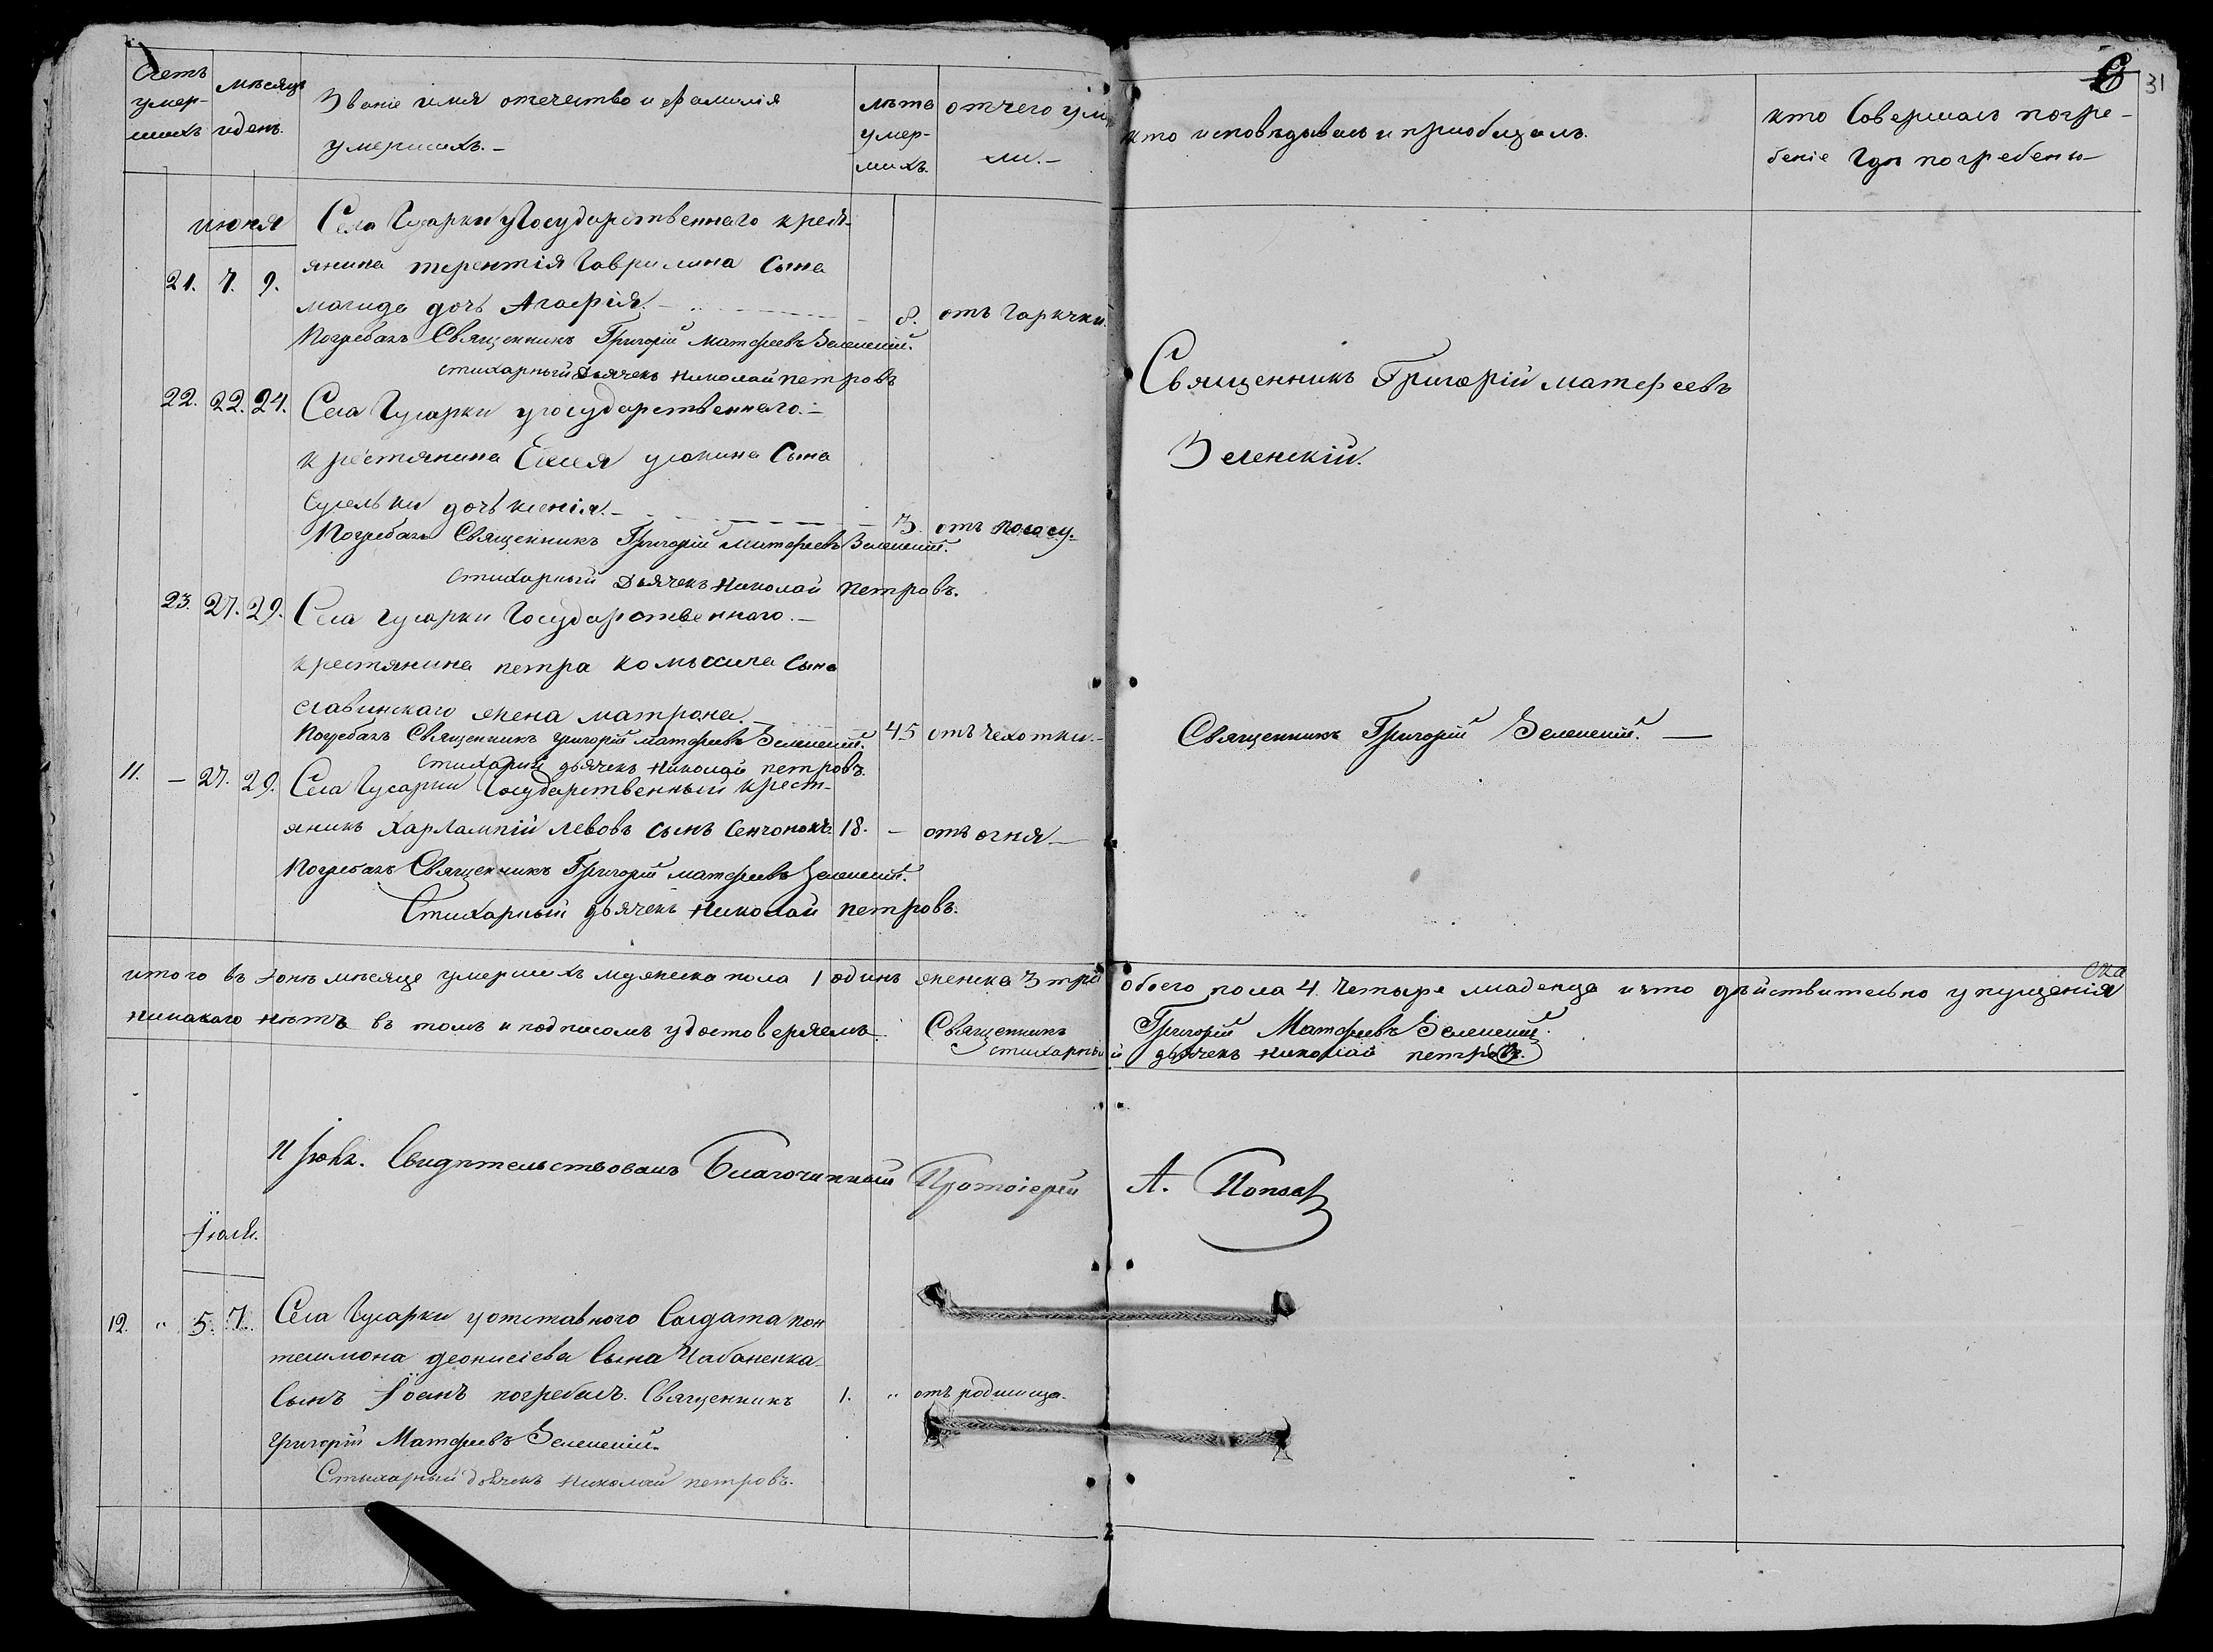 Счетъ умер-шихъ
мѣсяцъ и день.
Званіе имя отечество и фамилія
умершихъ.–
лѣта умер-шихъ.
отчего умер
ли.–
кто исповѣдывалъ и приобщалъ.
кто Совершалъ погре-
беніе Гдѣ погребены–
31
июня
Села Гусарки уГосударственнаго кресть-
21. 7. 9. янина терентія Гаврилина Сына
дочь Агафія. 8. отъ Горячки.
Погребалъ Священникъ Григорій матфеевъ Зеленскій.
стихарный Дьячекъ николай петровъ
Священникъ Григорій матфеевъ
Зеленскій.
22. 22. 24. Села Гусарки уГосударственнаго.–
крестянина Сына
дочь ксенія. 3. отъ поносу.
Погребалъ Священникъ Григорій матфеевъ Зеленскій.
стихарный Дьячекъ николай петровъ.
23. 27. 29. Села гусарки Государственнаго.–
крестянина петра Сына
славинскаго жена матрона. 45 отъ чехотки.–
Погребалъ Священникъ григорій матфеевъ Зеленскій.
Стихарный дьячекъ николай петровъ.
Священникъ Григорій Зеленскій. —
11. – 27. 29. Села Гусарки Государственный крест-
янинъ Харлампій левовъ сынъ Сенчонокъ 18. – отъ огня–
Погребалъ Священникъ Григорій матфеевъ Зеленскій.
Стихарный дьячекъ николай петровъ.
итого въ Іюнѣ мѣсяце умершихъ мужеска пола 1 одинъ женска 3 три обоего пола 4. четыре младенца и что дѣйствительно упущенія
никакого нѣтъ въ томъ и подписомъ удостоверяемъ. Священникъ Григорій Матфеевъ Зеленскій.
стихарный дьячекъ николай петровъ.
Свидѣтельствовалъ Благочинный Протоіерей А. Попов
Іюля.
12. " 5. 7. Села Гусарки уотставного Солдата пон
телимона деонисіева Сына Чабаненка
Сынъ Іоанъ погребалъ. Священникъ 1. " отъ родимца.
григорій Матфеевъ Зеленскій.
Стихарный дьячекъ николай петровъ.